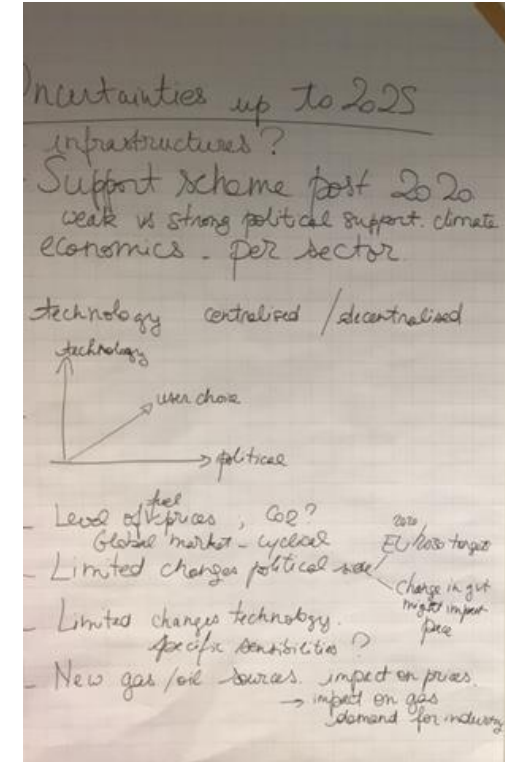 Uncertainties up to 2025
infrastructures?
Support scheme post 2020
weak vs strong political support. climate
economics - per sector
technology centralised / decentralised
technology
user choice
political
- Level of fuel prices, CO2?
Global market - cyclical
- Limited changes political
2020
EU/2030 target
Change in gvt
might impact
pace
- Limited changes technology.
specific sensibilities?
- New gas/oil sources. impact on prices.
→ impact on gas
demand for industry